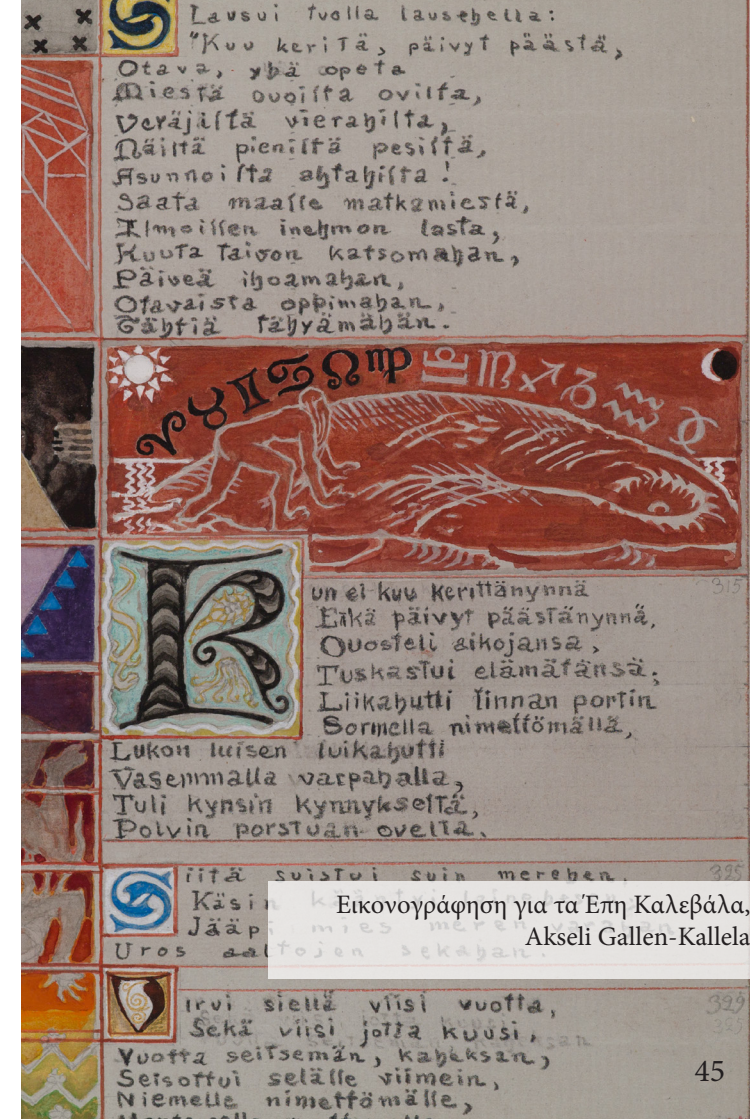 Lausui tuolla lausehella:
"Kuu keritä, päivyt päästä,
Otava, yhä opeta
Miestä ouoilta ovilta,
Veräjiltä vierahilta,
Näiltä pieniltä pesiltä,
Asunnoilta ahtahilta!
Saata maalle matkamiestä,
Ilmoillen inehmon lasta,
Kuuta taivon katsomahan,
Päiveä ihoamahan,
Otavaista oppimahan,
Tähtiä tähyämähän.
Kun ei kuu kerittänynnä 315
Eikä päivyt päästänynnä,
Ouosteli aikojansa,
Tuskastui elämätänsä;
Liikahutti linnan portin
Sormella nimettömällä,
Lukon luisen luikahutti
Vasemmalla varpahalla,
Tuli kynsin kynnykseltä,
Polvin porstuan ovelta.
Siitä suistui suin merehen, 325
Käsin kääntyi
Jääpi mies meren varahan
Uros aaltojen sekahan.
Εικονογράφηση για τα Έπη Καλεβάλα,
Akseli Gallen-Kallela
Virui siellä viisi vuotta, 329
Sekä viisi jotta kuusi,
Vuotta seitsemän, kaheksan,
Seisottui selälle viimein,
Niemelle nimettömälle,
45